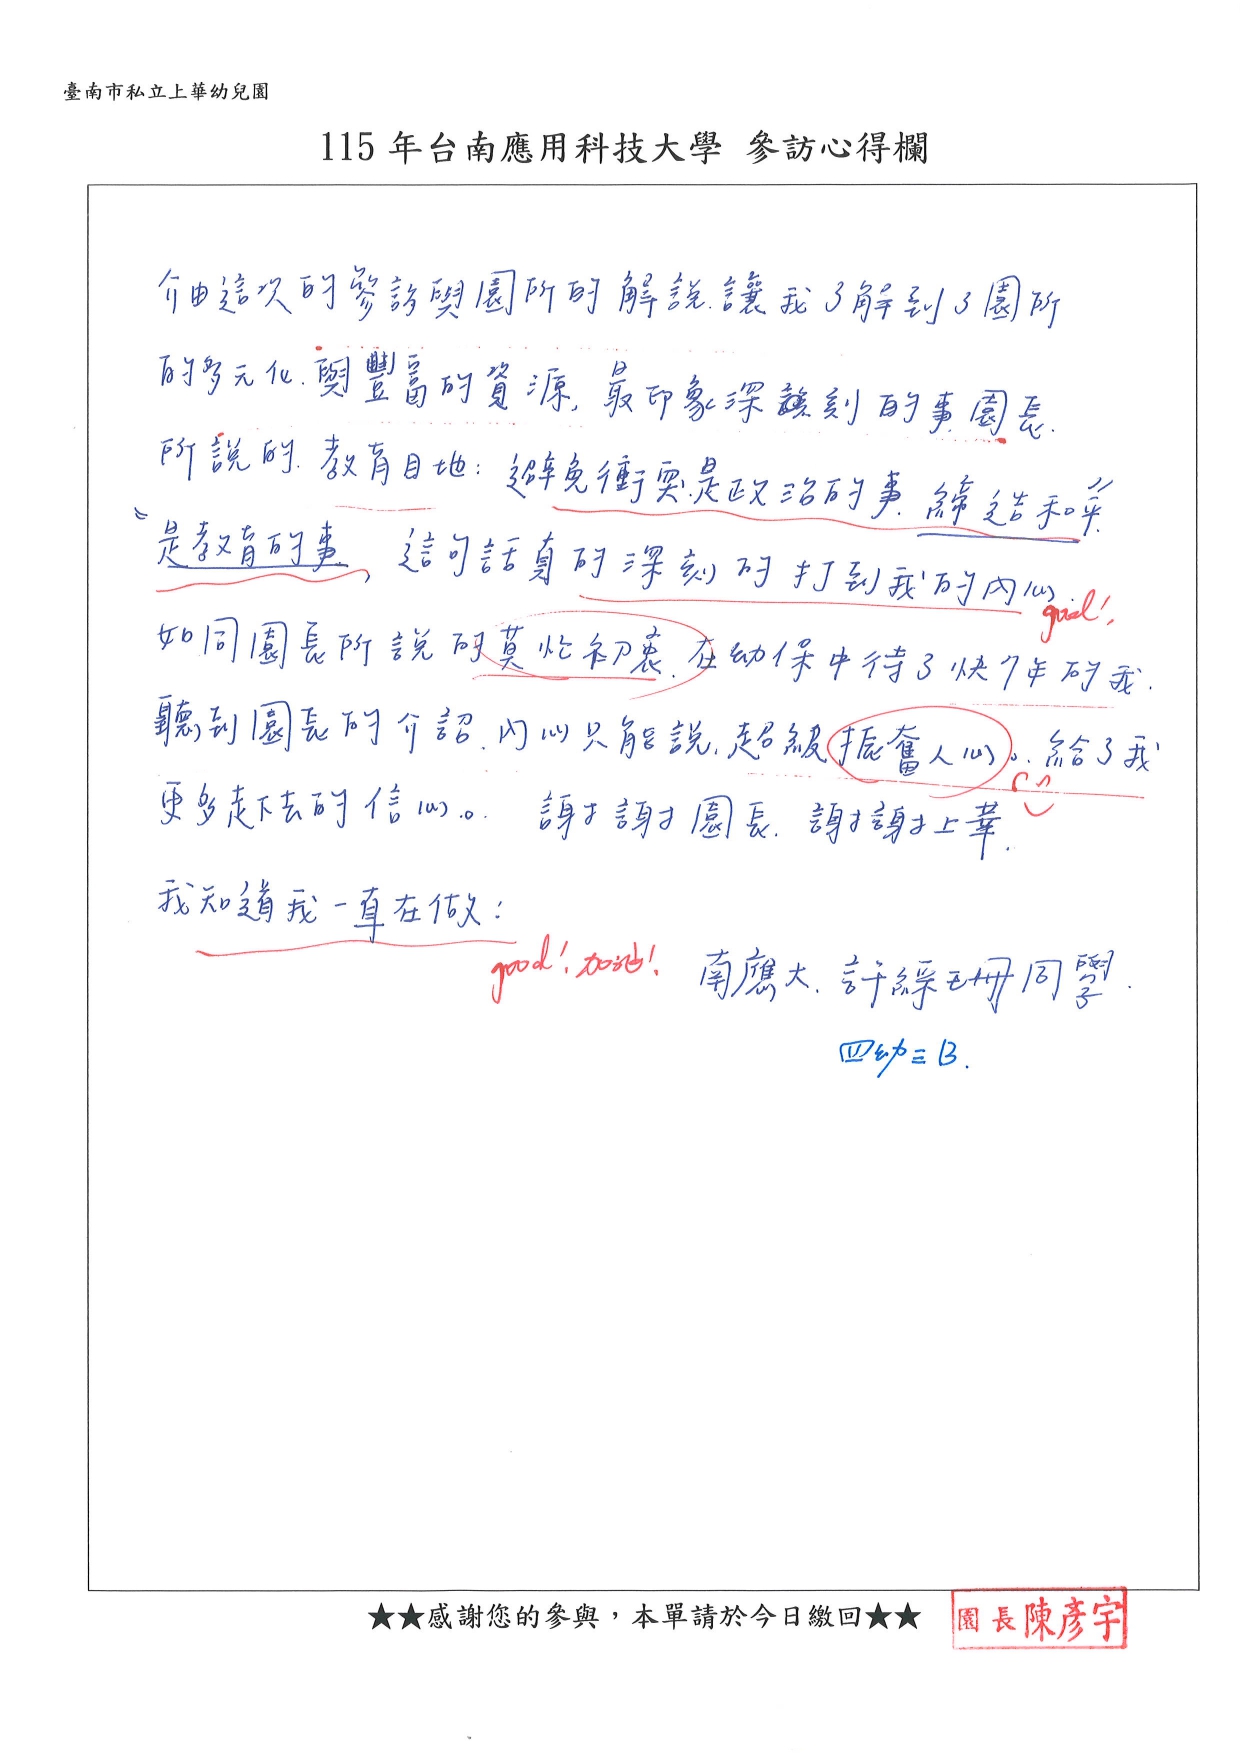 臺南市私立上華幼兒園
115 年台南應用科技大學 參訪心得欄
介由這次的參訪與園所的解說.讓我了解到了園所
的多元化.與豐富的資源,最印象深刻的事.園長.
所說的.教育目地:避免衝突.是政治的事.締造和平.
"是教育的事",這句話真的深刻的打到我的內心.
good!
如同園長所說的莫忘初衷.在幼保中待了快7年的我.
聽到園長的介認.內心只能說.超級振奮人心。.給了我
更多走下去的信心。. 謝謝園長.謝謝上華.
我知道我一直在做:
good!加油!
南應大.許綵珊同學.
四幼三B.
★★感謝您的參與,本單請於今日繳回★★
園長陳彥宇